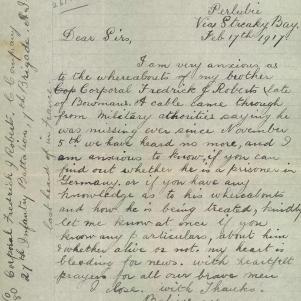 Perlubie
Via Streaky Bay.
Feb 17th 1917
Dear Sirs,
I am very anxious as
to the whereabouts of my brother
Cop Corporal Fredrick J Roberts late
of Bowmans. A cable came through
from Military athorities saying he
was missing ever since November
5th we have heard no more, and I
am anxious to know, if you can
find out whether he is a prisoner in
Germany. or if you have any
knowledge as to his whereabouts
and how he is being treated, kindly
let me know at once if you
know any particulars, about him
whether alive or not. my heart is
bleeding for news. with heartfelt
prayers for all our brave men
close. with Thanks.
Corporal Fredrick J Roberts, C Company
27th Infantry Battalion 7th Brigade, A.I.
last heard of in France